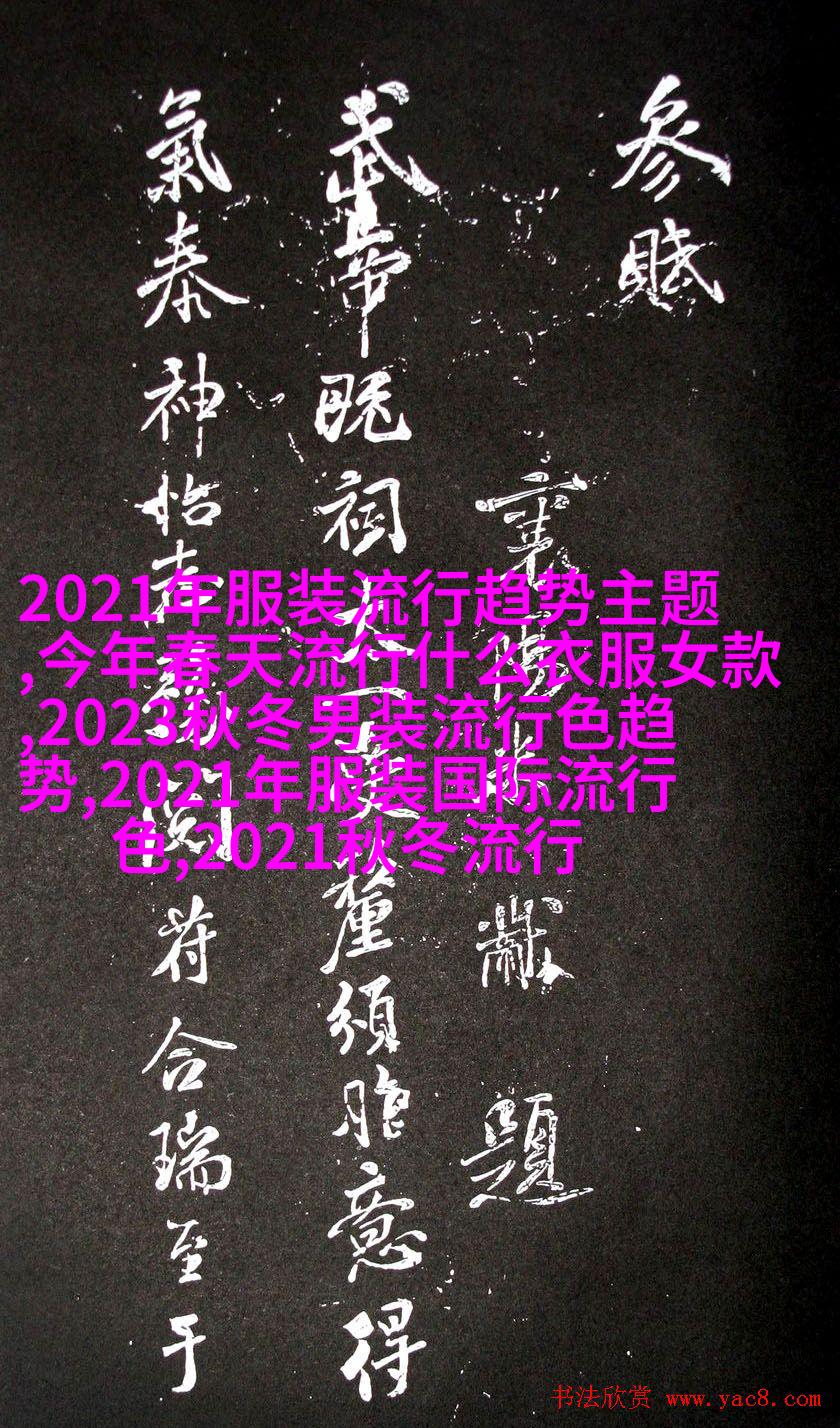 參賦
襄陽米黻
題
武帝既祠太一受釐頌胙意得
氣泰神怡壽
閱
符合瑞至于
2021年服装流行趋势主题
,今年春天流行什么衣服女款
,2023秋冬男装流行色趋
势,2021年服装国际流行
色,2021秋冬流行
书法欣赏 www.yac8.com